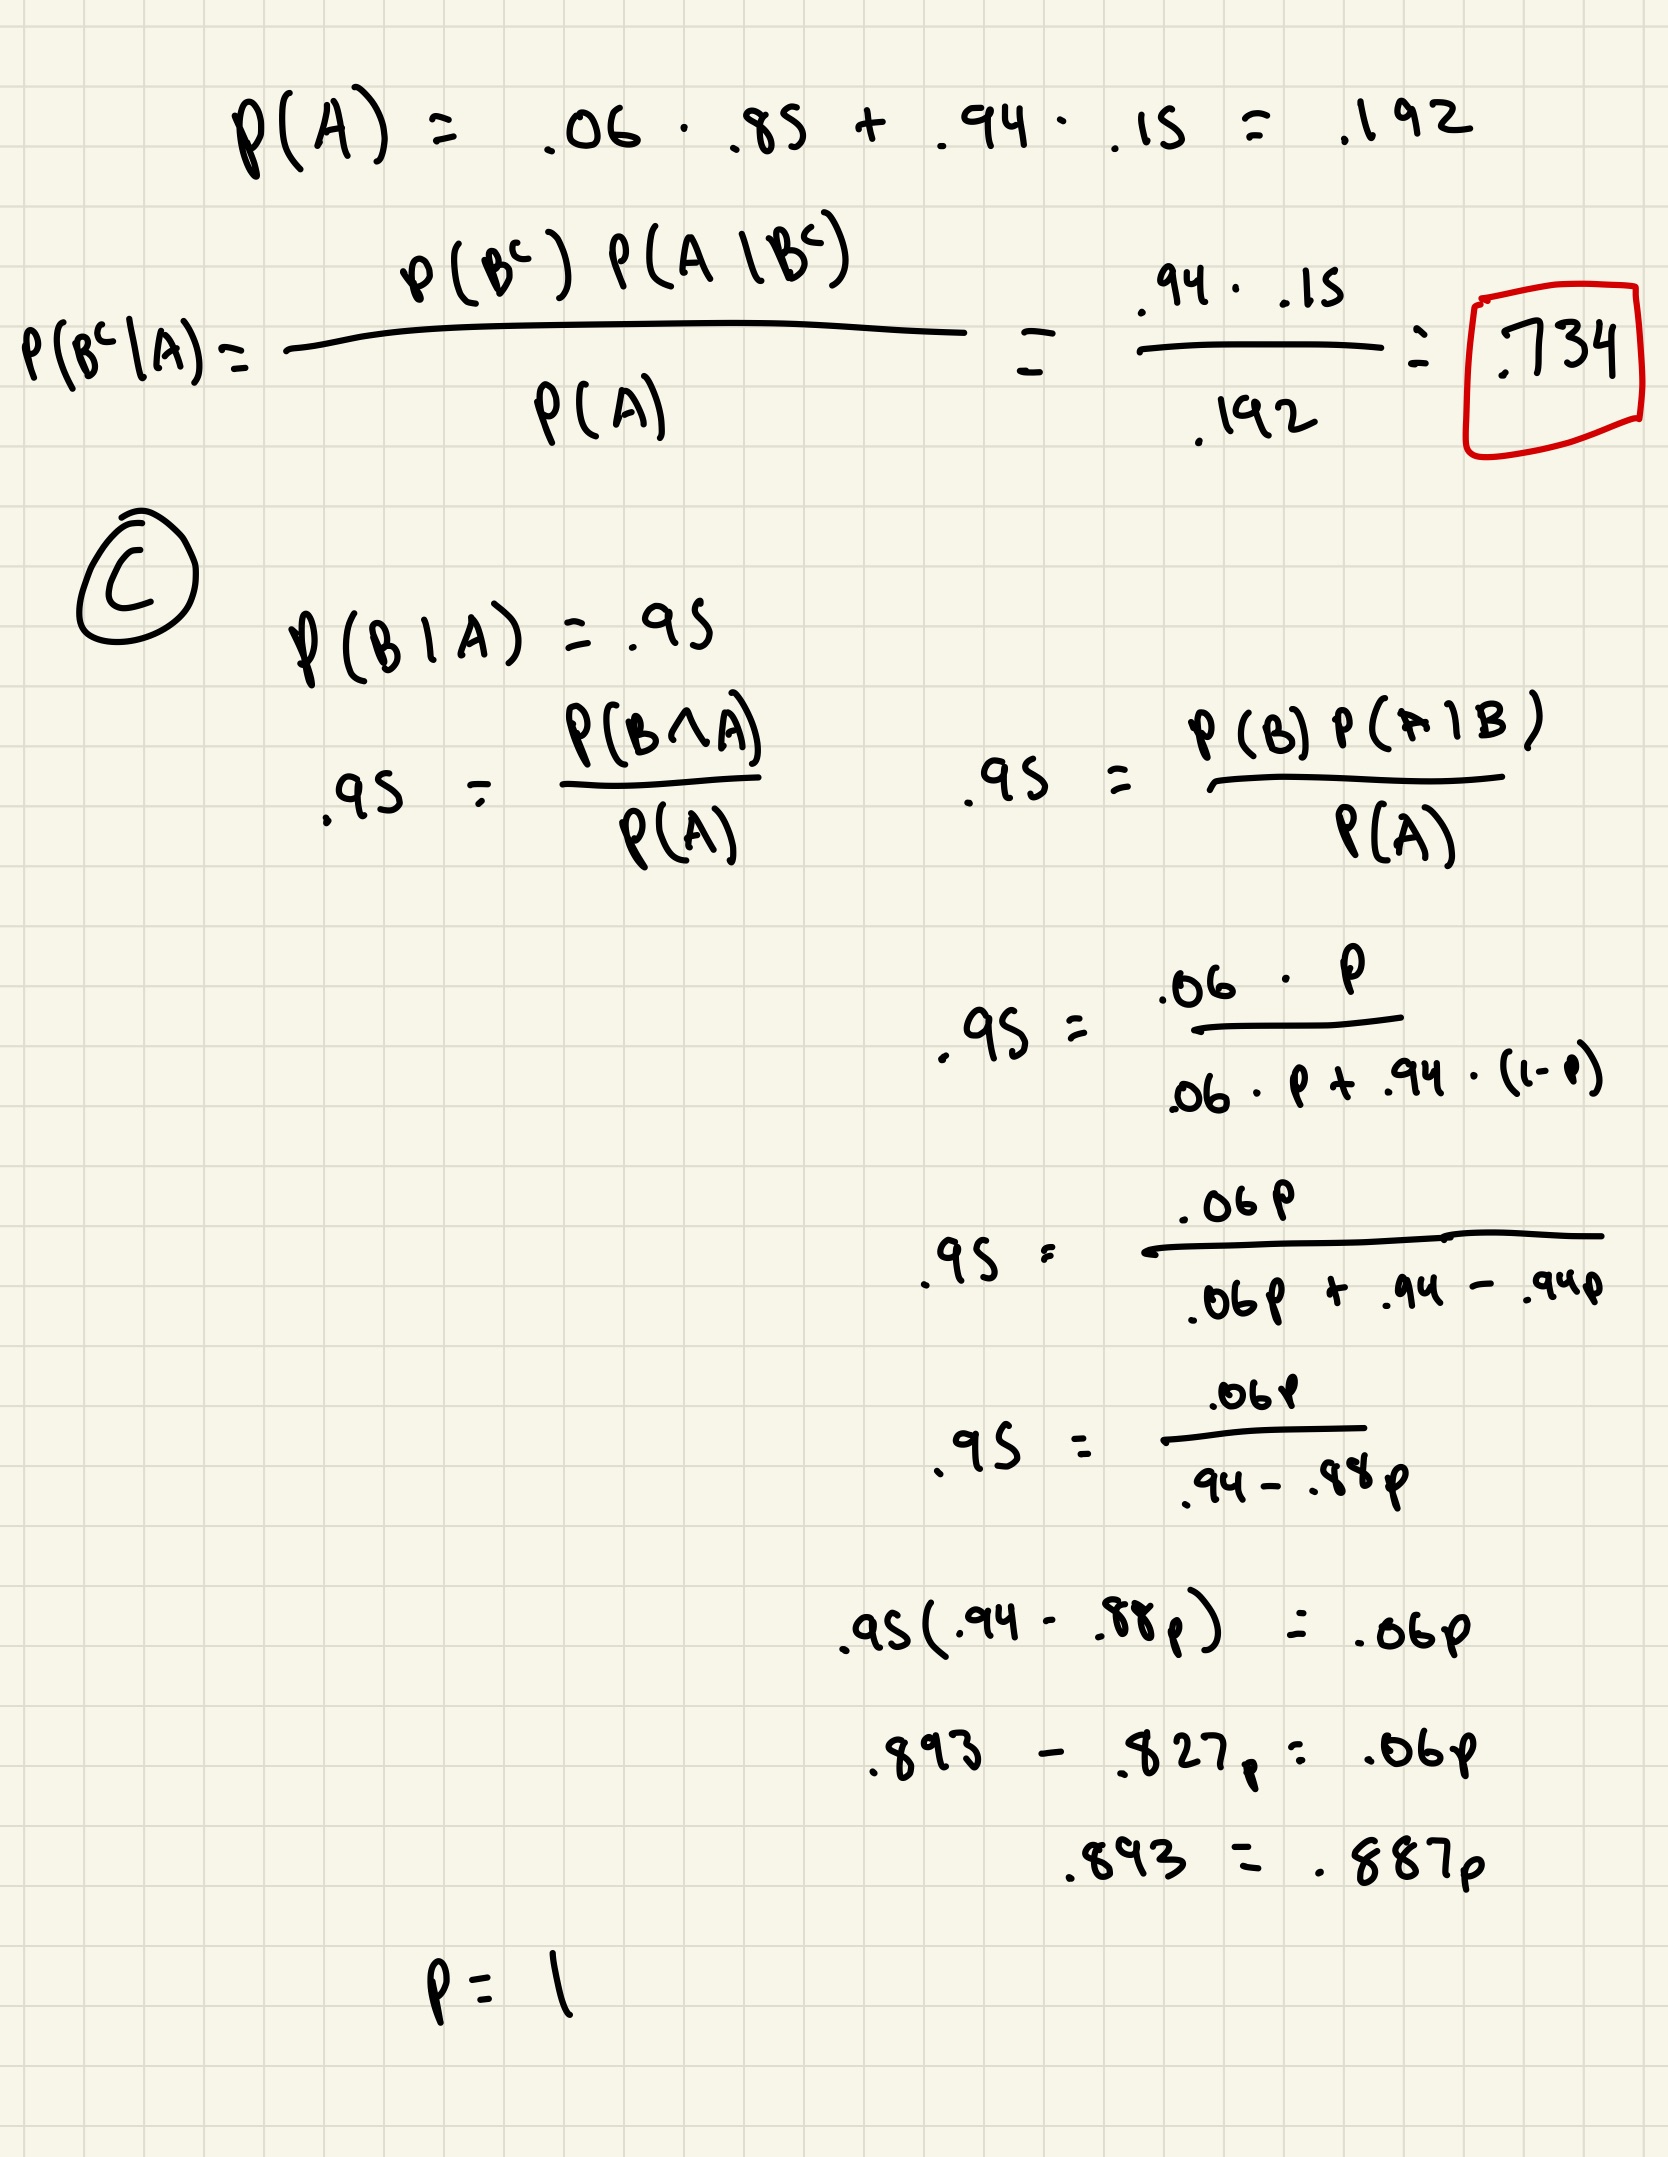 P(A) = .06 · .85 + .94 · .15 = .192
P(Bᶜ|A) = P(Bᶜ) P(A|Bᶜ) / P(A) = .94 · .15 / .192 = .734
C
P(B|A) = .95
.95 = P(B∧A) / P(A)
.95 = P(B) P(A|B) / P(A)
.95 = .06 · P / .06 · P + .94 · (1-P)
.95 = .06P / .06P + .94 - .94P
.95 = .06P / .94 - .88P
.95(.94 - .88P) = .06P
.893 - .827P = .06P
.893 = .887P
P = 1